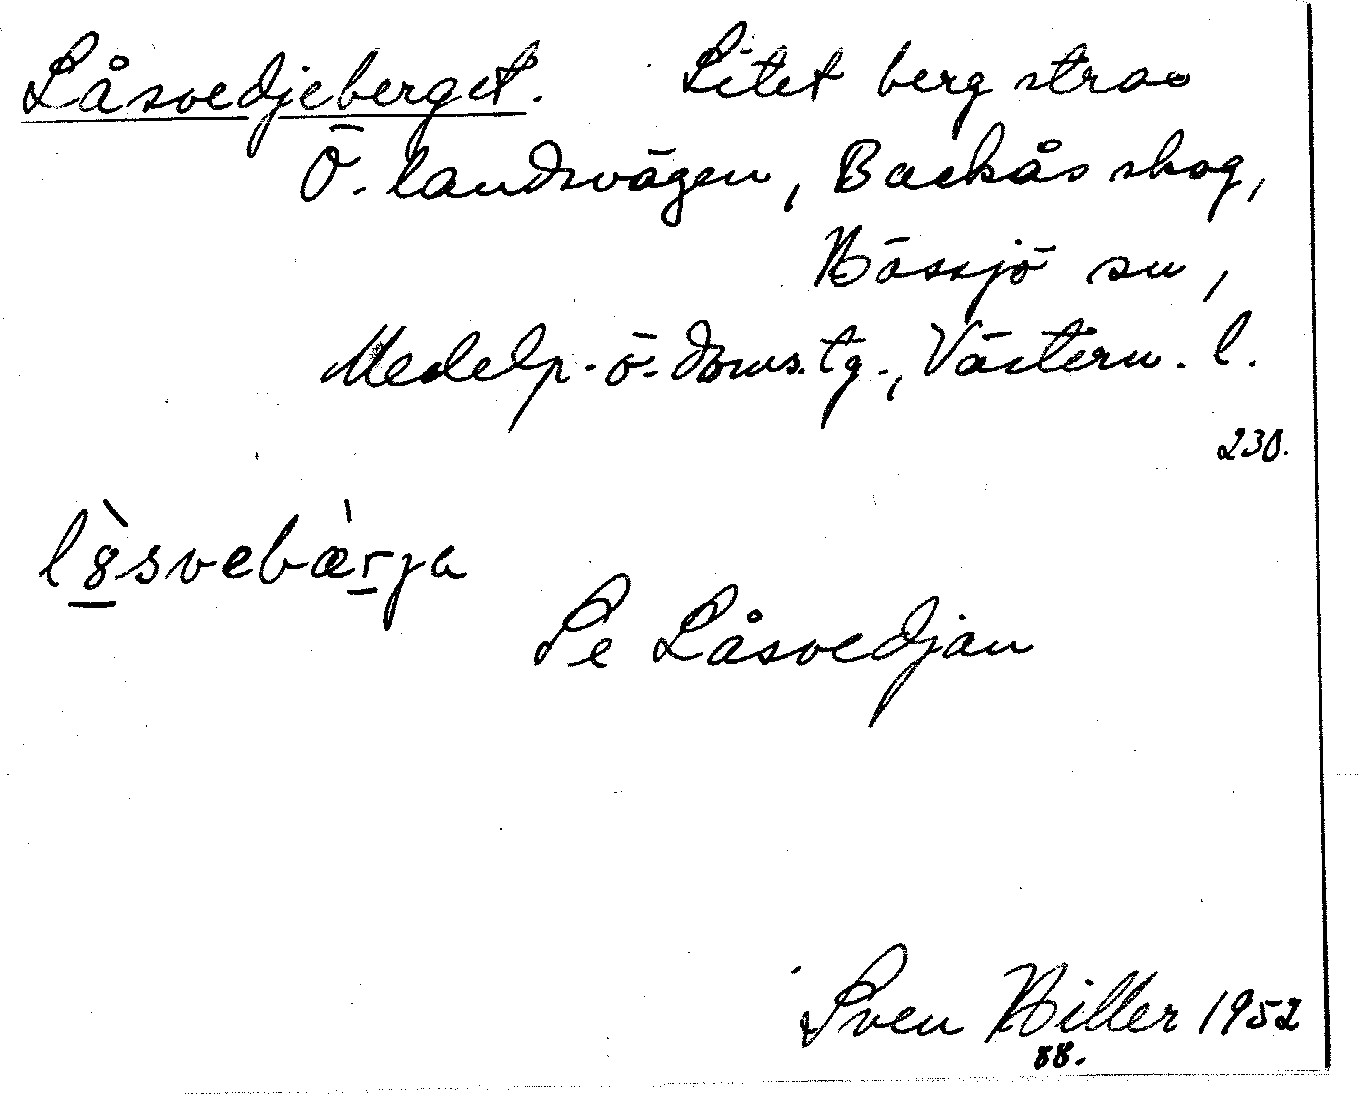 Låsvedjeberget. Litet berg strax
Ö. landsvägen, Backås skog,
Hässjö sn,
Medelp. ö. doms. tg., Västern. l.
230.
lo̠svebær̠ja
Se Låsvedjan
Sven Hiller 1952
88.